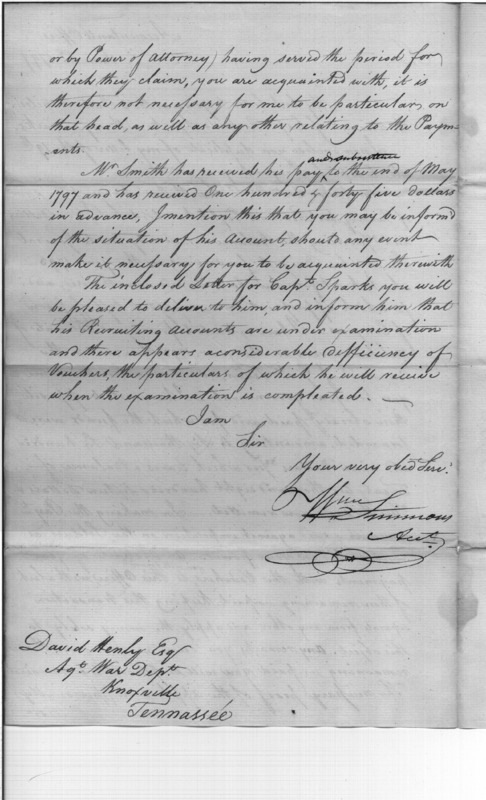 or by Power of Attorney) having served the period for
which they claim, you are acquainted with, it is
therefore not necessary for me to be particular, on
that head, as well as any other relating to the Paym-
ents.
and subsistence
Mr. Smith has received his pay to the end of May
1797 and has recived One hundred & forty five dollars
in advance, I mention this that you may be informd
of the situation of his Account, should any event
make it necessary for you to be acquainted therewith
The inclosed Letter for Capt. Sparks you will
be pleased to deliver to him, and inform him that
his Recruiting Accounts are under examination
and there appears a considerable defficiency of
Vouchers, the particulars of which he will receive
when the examination is compleated. —
I am
Sir
Your very obed. Serv.
Wm Simmons
Acct.
David Henly Esq
Agt. War Dept.
Knoxville
Tennassée